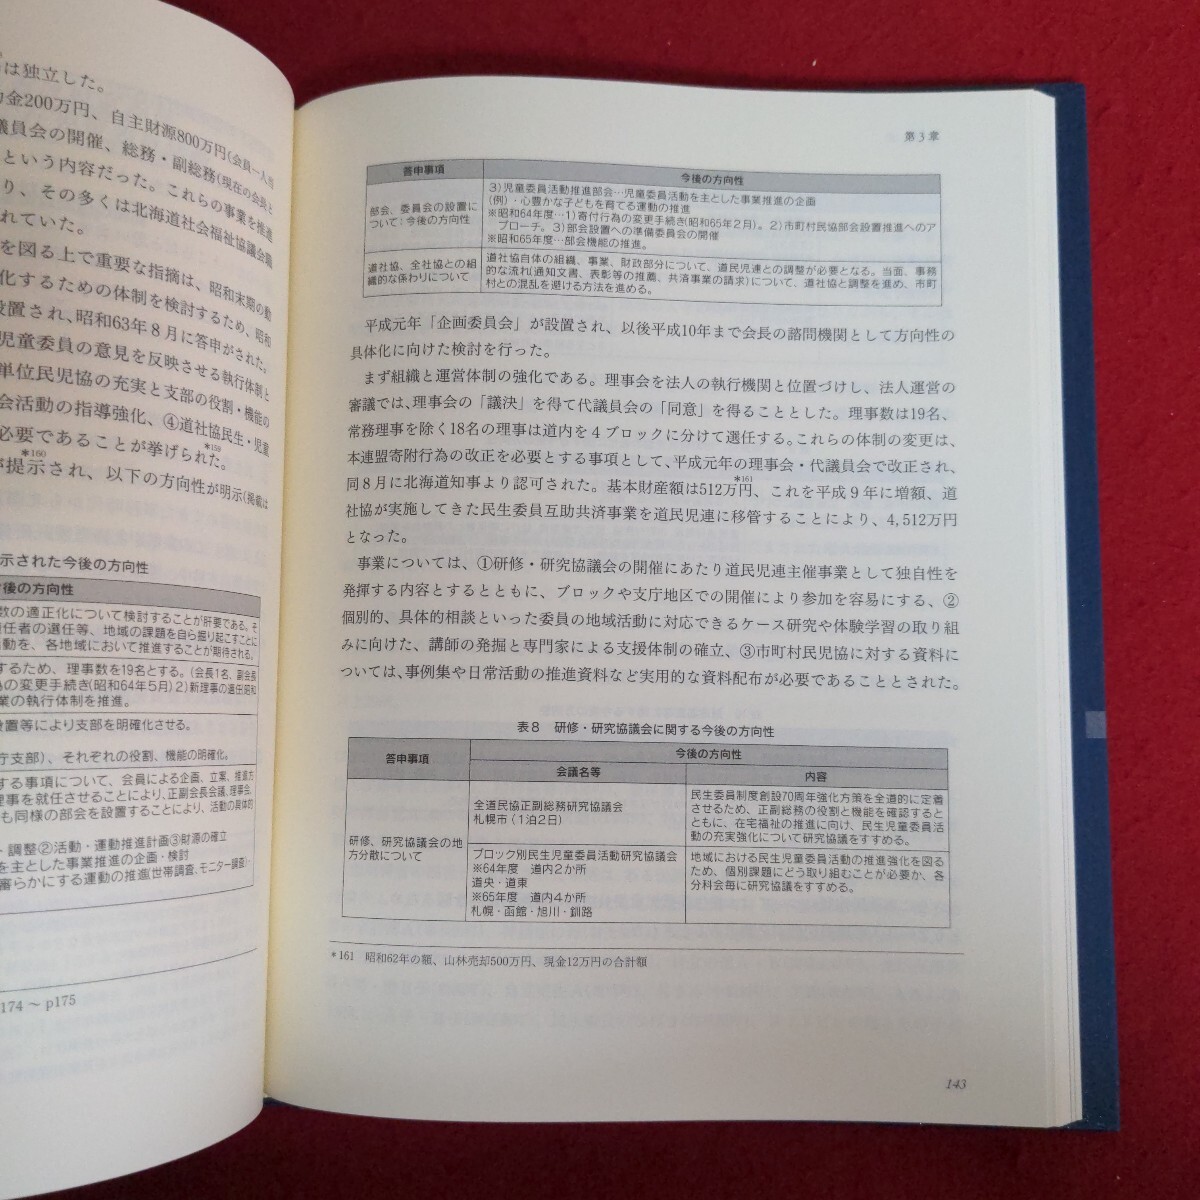 は独立した。
金200万円、自主財源800万円(会員一人当
議員会の開催、総務・副総務(現在の会長と
という内容だった。これらの事業を推進
り、その多くは北海道社会福祉協議会職
れていた。
を図る上で重要な指摘は、昭和末期の動
化するための体制を検討するため、昭和
設置され、昭和63年8月に答申がされた。
児童委員の意見を反映させる執行体制と
単位民児協の充実と支部の役割・機能の
会活動の指導強化、④道社協民生・児童
必要であることが挙げられた。*159
が提示され、*160以下の方向性が明示(掲載は
示された今後の方向性
今後の方向性
数の適正化について検討することが肝要である。そ
責任者の選任等、地域の課題を自ら掘り起こすことに
動を、各地域において推進することが期待される。
するため、理事数を19名とする。(会長1名、副会長
の変更手続き(昭和64年5月) 2)新理事の選任昭和
業の執行体制を推進。
設置等により支部を明確化させる。
庁支部)、それぞれの役割、機能の明確化。
する事項について、会員による企画、立案、推進方
理事を就任させることにより、正副会長会議、理事会、
も同様の部会を設置することにより、活動の具体的
・調整②活動・運動推進計画③財源の確立
を主とした事業推進の企画・検討
審らかにする運動の推進(世帯調査、モニター調査)・
174～p175
第3章
答申事項 今後の方向性
部会、委員会の設置に
ついて:今後の方向性
3)児童委員活動推進部会…児童委員活動を主とした事業推進の企画
(例)・心豊かな子どもを育てる運動の推進
※昭和64年度…1)寄付行為の変更手続き(昭和65年2月)。2)市町村民協部会設置推進へのア
プローチ。3)部会設置への準備委員会の開催
※昭和65年度…部会機能の推進。
道社協、全社協との組
織的な係わりについて
道社協自体の組織、事業、財政部分について、道民児連との調整が必要となる。当面、事務
的な流れ(通知文書、表彰等の推薦、共済事業の請求)について、道社協と調整を進め、市町
村との混乱を避ける方法を進める。
平成元年「企画委員会」が設置され、以後平成10年まで会長の諮問機関として方向性の
具体化に向けた検討を行った。
まず組織と運営体制の強化である。理事会を法人の執行機関と位置づけし、法人運営の
審議では、理事会の「議決」を得て代議員会の「同意」を得ることとした。理事数は19名、
常務理事を除く18名の理事は道内を4ブロックに分けて選任する。これらの体制の変更は、
本連盟寄附行為の改正を必要とする事項として、平成元年の理事会・代議員会で改正され、
同8月に北海道知事より認可された。基本財産額は512万円*161、これを平成9年に増額、道
社協が実施してきた民生委員互助共済事業を道民児連に移管することにより、4,512万円
となった。
事業については、①研修・研究協議会の開催にあたり道民児連主催事業として独自性を
発揮する内容とするとともに、ブロックや支庁地区での開催により参加を容易にする、②
個別的、具体的相談といった委員の地域活動に対応できるケース研究や体験学習の取り組
みに向けた、講師の発掘と専門家による支援体制の確立、③市町村民児協に対する資料に
ついては、事例集や日常活動の推進資料など実用的な資料配布が必要であることとされた。
表8 研修・研究協議会に関する今後の方向性
答申事項 今後の方向性
会議名等 内容
研修、研究協議会の地
方分散について
全道民協正副総務研究協議会
札幌市(1泊2日)
民生委員制度創設70周年強化方策を全道的に定着
させるため、正副総務の役割と機能を確認すると
ともに、在宅福祉の推進に向け、民生児童委員活
動の充実強化について研究協議をすすめる。
ブロック別民生児童委員活動研究協議会
※64年度 道内2か所
道央・道東
※65年度 道内4か所
札幌・函館・旭川・釧路
地域における民生児童委員活動の推進強化を図る
ため、個別課題にどう取り組むことが必要か、各
分科会毎に研究協議をすすめる。
*161 昭和62年の額、山林売却500万円、現金12万円の合計額
143